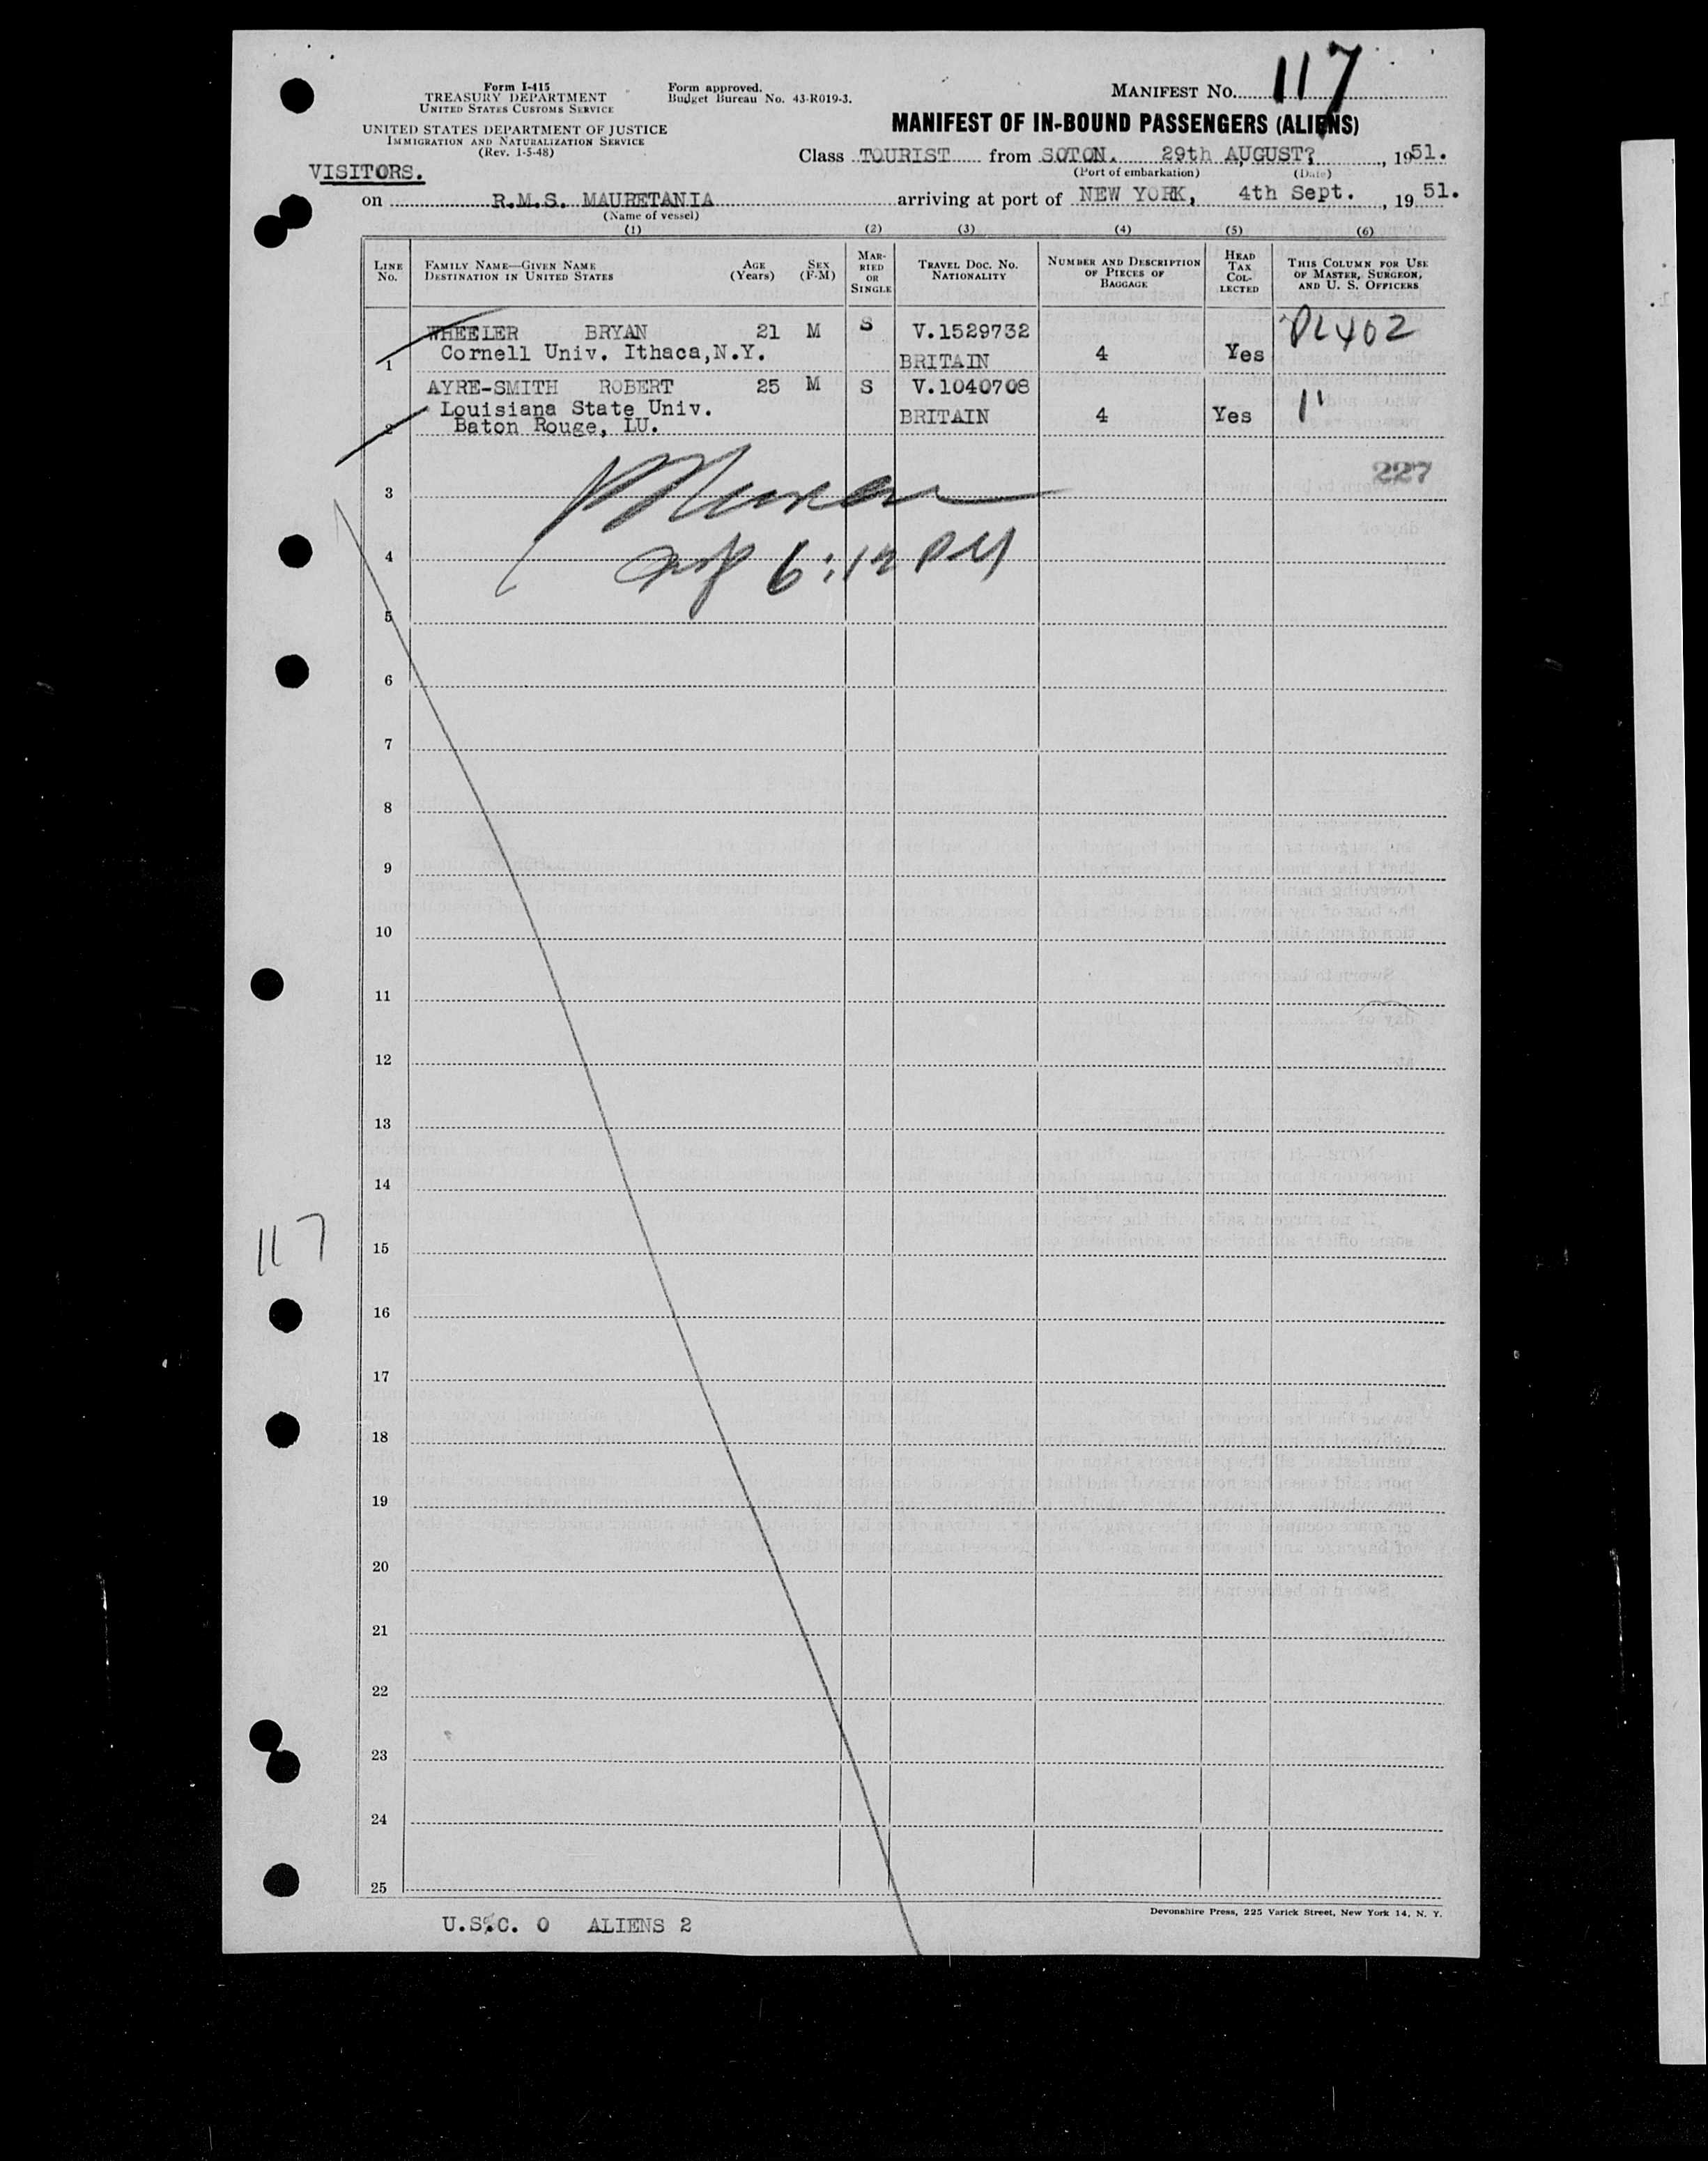 Form I-415
TREASURY DEPARTMENT
UNITED STATES CUSTOMS SERVICE
UNITED STATES DEPARTMENT OF JUSTICE
IMMIGRATION AND NATURALIZATION SERVICE
(Rev. 1-5-48)
Form approved.
Budget Bureau No. 43-R019-3.
MANIFEST NO. 117
MANIFEST OF IN-BOUND PASSENGERS (ALIENS)
Class TOURIST from SOTON. 29th AUGUST?, 1951.
(Port of embarkation) (Date)
VISITORS.
on R.M.S. MAURETANIA arriving at port of NEW YORK, 4th Sept., 1951.
(Name of vessel)
(1) (2) (3) (4) (5) (6)
LINE NO.
FAMILY NAME—GIVEN NAME
DESTINATION IN UNITED STATES
AGE (YEARS)
SEX (F-M)
MARRIED OR SINGLE
TRAVEL DOC. NO.
NATIONALITY
NUMBER AND DESCRIPTION OF PIECES OF BAGGAGE
HEAD TAX COLLECTED
THIS COLUMN FOR USE OF MASTER, SURGEON, AND U. S. OFFICERS
WHEELER BRYAN 21 M S V.1529732 PL402
1 Cornell Univ. Ithaca,N.Y. BRITAIN 4 Yes
AYRE-SMITH ROBERT 25 M S V.1040708
Louisiana State Univ. BRITAIN 4 Yes 1'
2 Baton Rouge, LU.
227
3
4 6:12 PM
5
6
7
8
9
10
11
12
13
14
117
15
16
17
18
19
20
21
22
23
24
25
Devonshire Press, 225 Varick Street, New York 14, N. Y.
U.S.C. 0 ALIENS 2